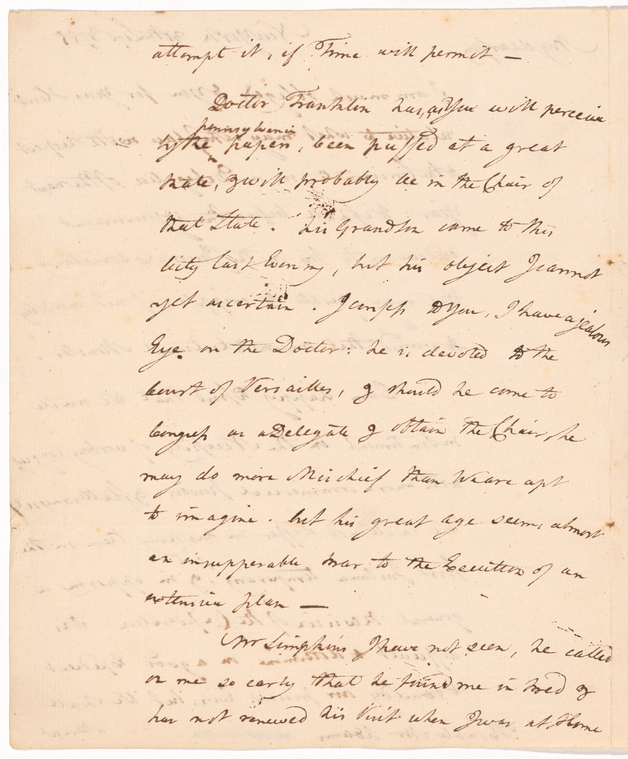 attempt it, if Time will permit —
Doctor Franklin has, as You will perceive
pennsylvania
by the papers, been puffed at a great
Rate, & will probably be in the Chair of
that State. his Grandson came to this
City last Evening, but his object I cannot
yet ascertain. I confess to You, I have a jealous
Eye on the Doctor: he is devoted to the
Court of Versailles, & should he come to
Congress as a Delegate & obtain the Chair, he
may do more Mischief than We are apt
to imagine. but his great age seems almost
an insupperable bar to the Execution of an
extensive plan —
Mr Simpkins I have not seen, he called
on me so early that he found me in bed &
has not renewed his Visit when I was at Home